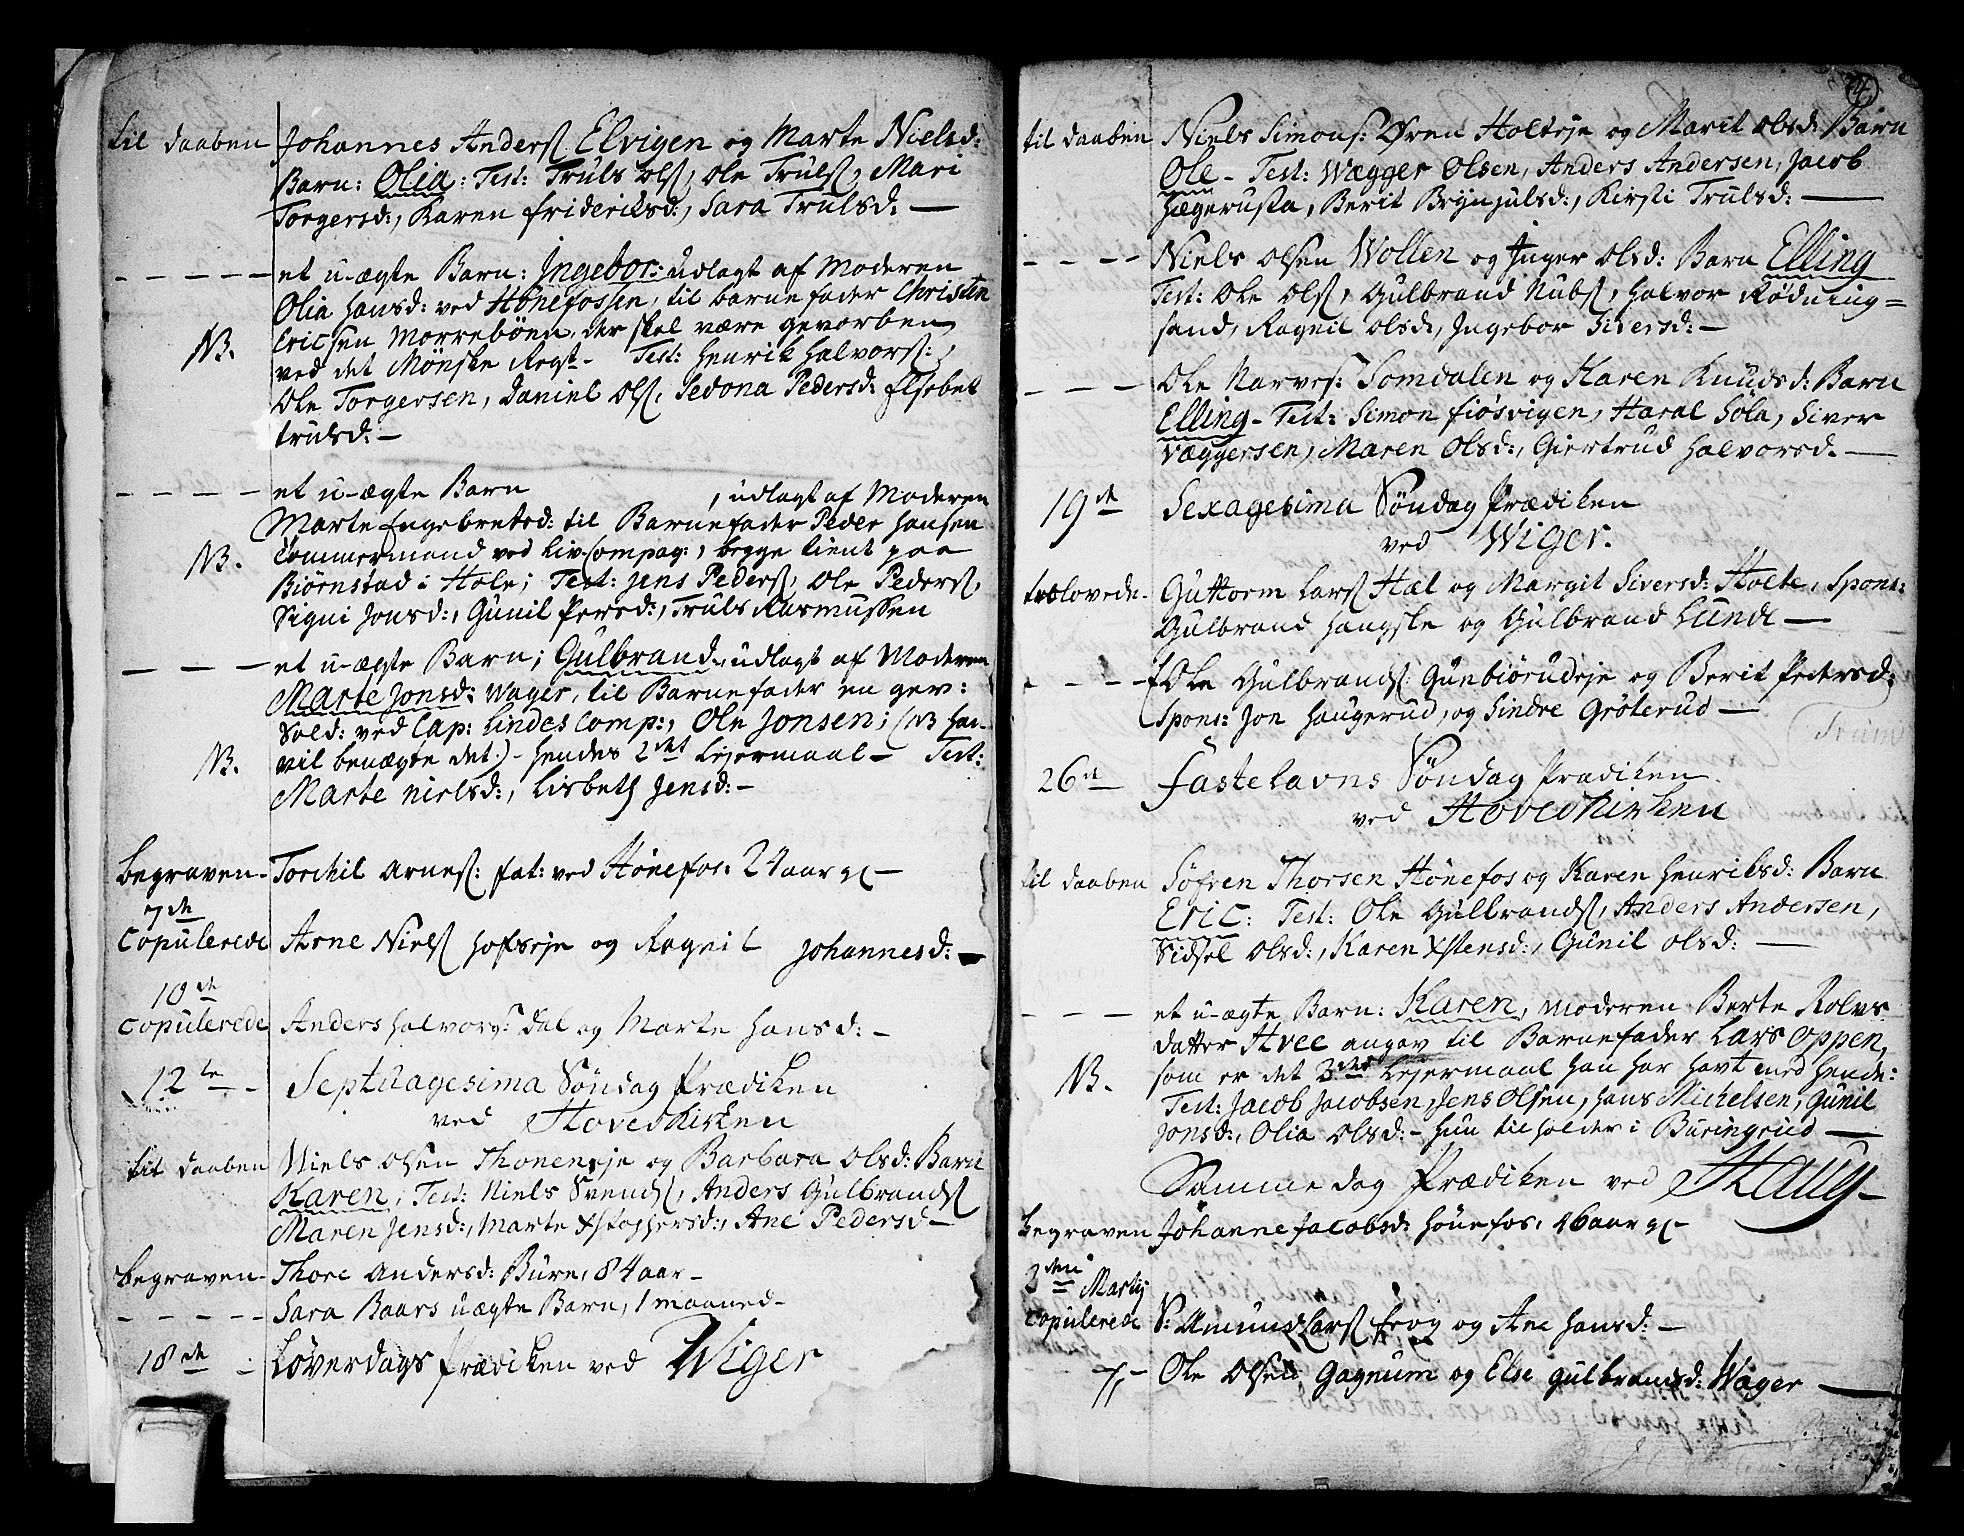 til daaben Johannes Anders. Elvigen og Marte Nielsd:
Barn: Olia: Test: Truls Ols, Ole Truls, Mari
Torgersd:, Karen frideriksd:, Sara Trulsd: —
– – – – – et u-ægte Barn: Ingebor: udlagt af Moderen
Olia Hansd: ved Hönefossen, til barnefader Christen
NB. Ericsen Morreböen, der skal være gevorben
ved det Mönske Regt – Test: Henrik Halvors:,
Ole Torgersen, Daniel Ols, Sedona Pedersd: Elsebet
trulsd: –
– – – – et u-ægte Barn , udlagt af Moderen
Marte Engebretsd: til Barnefader Peder Hansen
NB. Tømmermand ved Liv Compag:, begge tient paa
Biørnstad i Hole; Test: Jens Peders, Ole Peders,
Signi Jonsd:, Gunil Persd:, Truls Rasmussen
– – – – et u-ægte Barn; Gulbrand, udlagt af Moderen
Marte Jonsd: Wager, til Barnefader en gev:
Sold: ved Cap: Lindes Comp:, Ole Jonsen; (NB Han
NB. vil benægte det:) – hendes 2det Lejermaal – Test:
Marte Nielsd:, Lisbeth Jensd: –
begraven – Torchil Arnes: fat: ved Hönefos: 24 aar gl –
7de
Copulerede Arne Niels Hofseje og Ragnil Johannesd: –
10de
Copulerede Anders Halvors: Dal og Marte Hansd: –
12te – Septuagesima Söndag Prædiken
ved Hovedkirken
til daaben Niels Olsen Thoneneje og Barbara Olsd: Barn
Karen, Test: Niels Svends, Anders Gulbrands
Maren Jensd:, Marte Xstophersd:, Ane Pedersd –
begraven – Thore Andersd: Bure, 84 aar –
– – – – – Sara Baars uægte Barn, 1 maaned –
18de – Löverdags Prædiken ved Wiger
til daaben Niels Simons: Ören Holteje og Marit Olsd: Barn
Ole – Test: Wægger Olsen, Anders Andersen, Jacob
Hægerusta, Berit Brynjulsd:, Kirsti Trulsd: —
– – – – Niels Olsen Wollen og Inger Olsd: Barn Elling
Test: Ole Ols, Gulbrand Nubs, Halvor Rödning=
sand, Ragnil Olsd:, Ingebor Siversd: –
– – – – Ole Narves: Somdalen og Karen Knudsd: Barn
Elling – Test: Simon fiösvigen, Haral Söla, Siver
Væggersen, Maren Olsd:, Giertrud Halvorsd: —
19de Sexagesima Söndag Prædiken
ved Wiger.
trolovede – Guttorm Lars Hæl og Margit Siversd: Holte, Spons:
Gulbrand Haugsle og Gulbrand Lunde —
– – – – Ole Gulbrands: Gunbiörudeje og Berit Pedersd:
Spons: Jon Haugerud, og Sindre Gröterud —
26de Fastelavns Söndag Prædiken
ved Hovedkirken
til daaben Söfren Thorsen Hönefos og Karen Henriksd: Barn
Eric: Test: Ole Gulbrands, Anders Andersen,
Sidsel Olsd:, Karen Xstensd:, Gunil Olsd: —
– – – et u-ægte Barn: Karen, Moderen Berte Rolvs
datter Hvee angav til Barnefader Lars Oppen,
NB. som er det 3die Lejermaal han har havt med hende:
Test: Jacob Jacobsen, Jens Olsen, Hans Michelsen, Gunil
Jonsd:, Olia Olsd: – Hun tilholder i Buringrud —
Samme dag Prædiken ved Haug –
begraven Johanne Jacobsd: Hönefos: 46 aar gl –
3den Martij
Copulerede S: Amund Lars frog og Ane Hansd: –
7, – Ole Olsen Gagnum og Else Gulbrandsd: Wager —